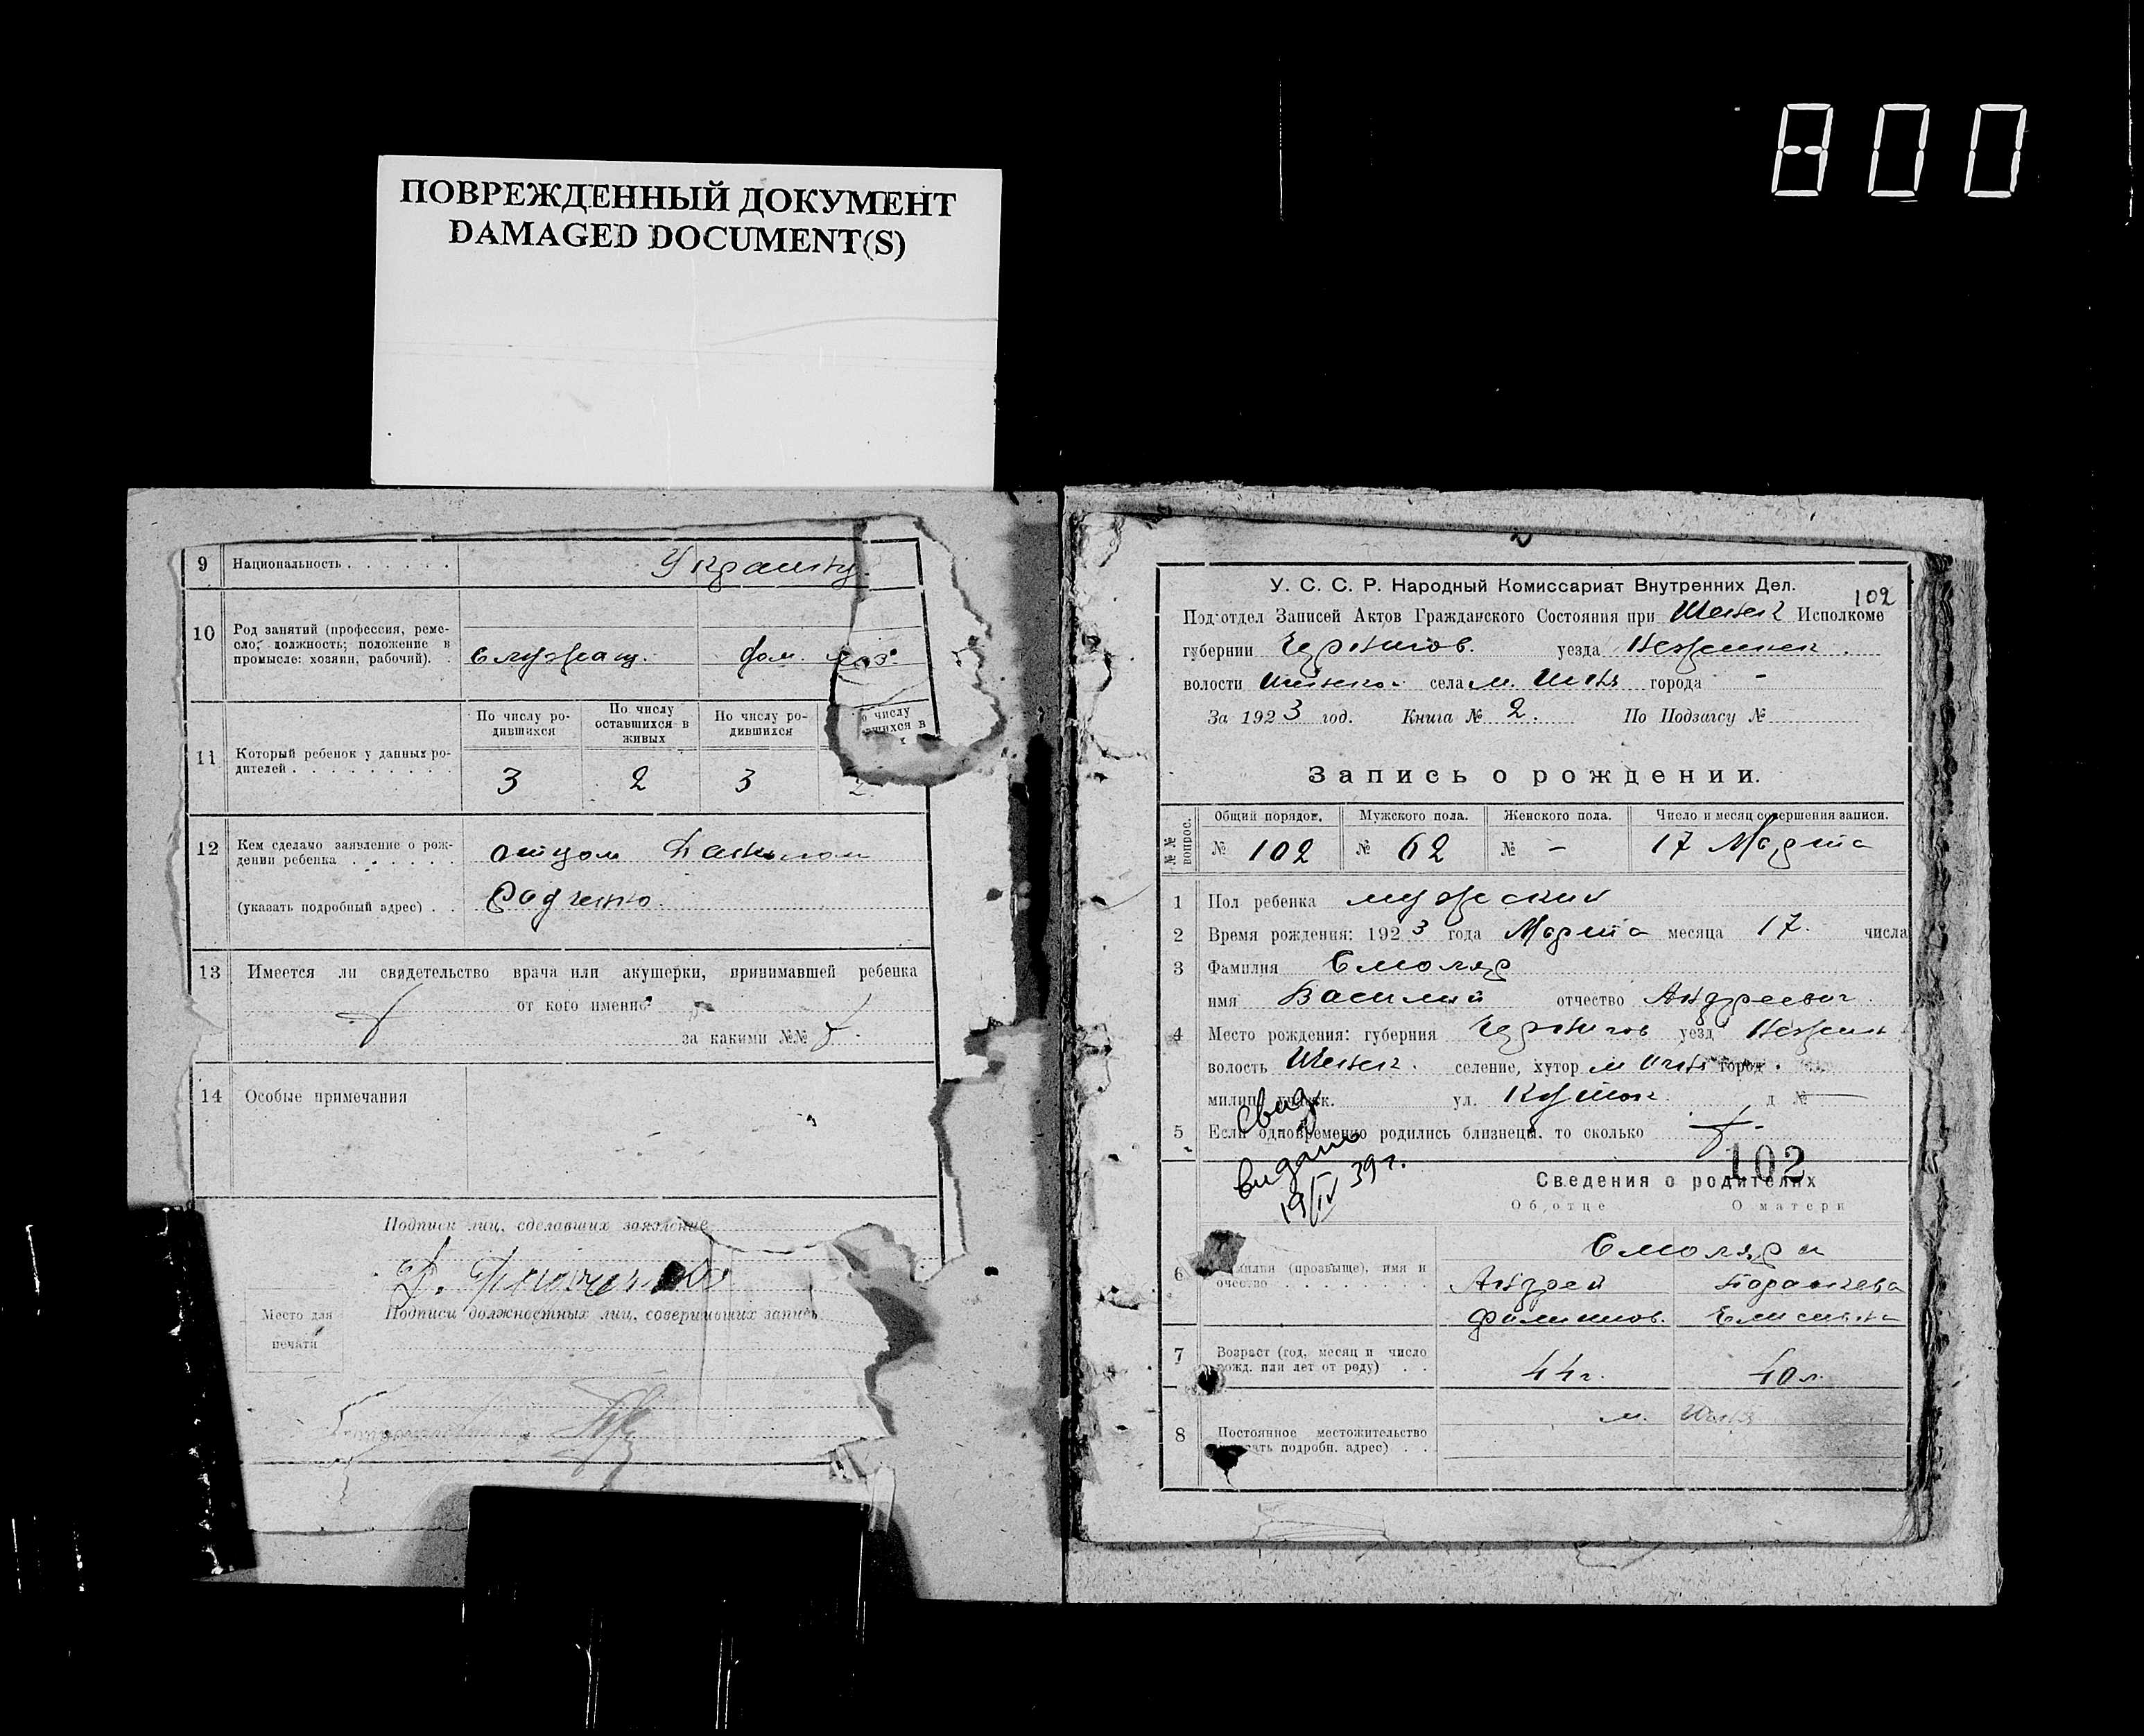 800
ПОВРЕЖДЕННЫЙ ДОКУМЕНТ
DAMAGED DOCUMENT(S)
9 Национальность . . . . . .
10 Род занятий (профессия, реме-
сло, должность; положение в
промысле: хозяин, рабочий). .
служащ. дом. хоз.
11 Который ребенок у данных ро-
дителей . . . . . . . . .
По числу ро-
дившихся
По числу
оставшихся в
живых
По числу ро-
дившихся
числу
3 2 3 2
12 Кем сделано заявление о рож-
дении ребенка . . . . . .
отцом
(указать подробный адрес) . .
13 Имеется ли свидетельство врача или акушерки, принимавшей ребенка
от кого именно
за какими №№
14 Особые примечания
Подписи лиц, сделавших заявление
Место для
печати
Подписи должностных лиц, совершивших запись
У. С. С. Р. Народный Комиссариат Внутренних Дел.
102
Под'отдел Записей Актов Гражданского Состояния при Исполкоме
губернии Чернигов. уезда Нежинск.
волости села м. города -
За 1923 год. Книга № 2. По Подзагсу №
Запись о рождении.
№№ вопрос.
Общий порядок. Мужского пола. Женского пола. Число и месяц совершения записи.
№ 102 № 62 № - 17 Марта
1 Пол ребенка мужской
2 Время рождения: 1923 года Марта месяца 17. числа
3 Фамилия Смоляр
имя Василий отчество Андреевич
4 Место рождения: губерния Чернигов уезд Нежин
волость селение, хутор м город
милиц. участк. ул. д №
5 Если одновременно родились близнецы, то сколько
Свид
видано
19/IV 39 г.
102
Сведения о родителях
Об отце О матери
6 Фамилия (прозвище), имя и
отчество . . . . . . . .
Смоляр
Андрей
Филиппов.
7 Возраст (год, месяц и число
рожд. или лет от роду) . .
44 г. 40 л.
8 Постоянное местожительство
(указать подробн. адрес) . .
м.